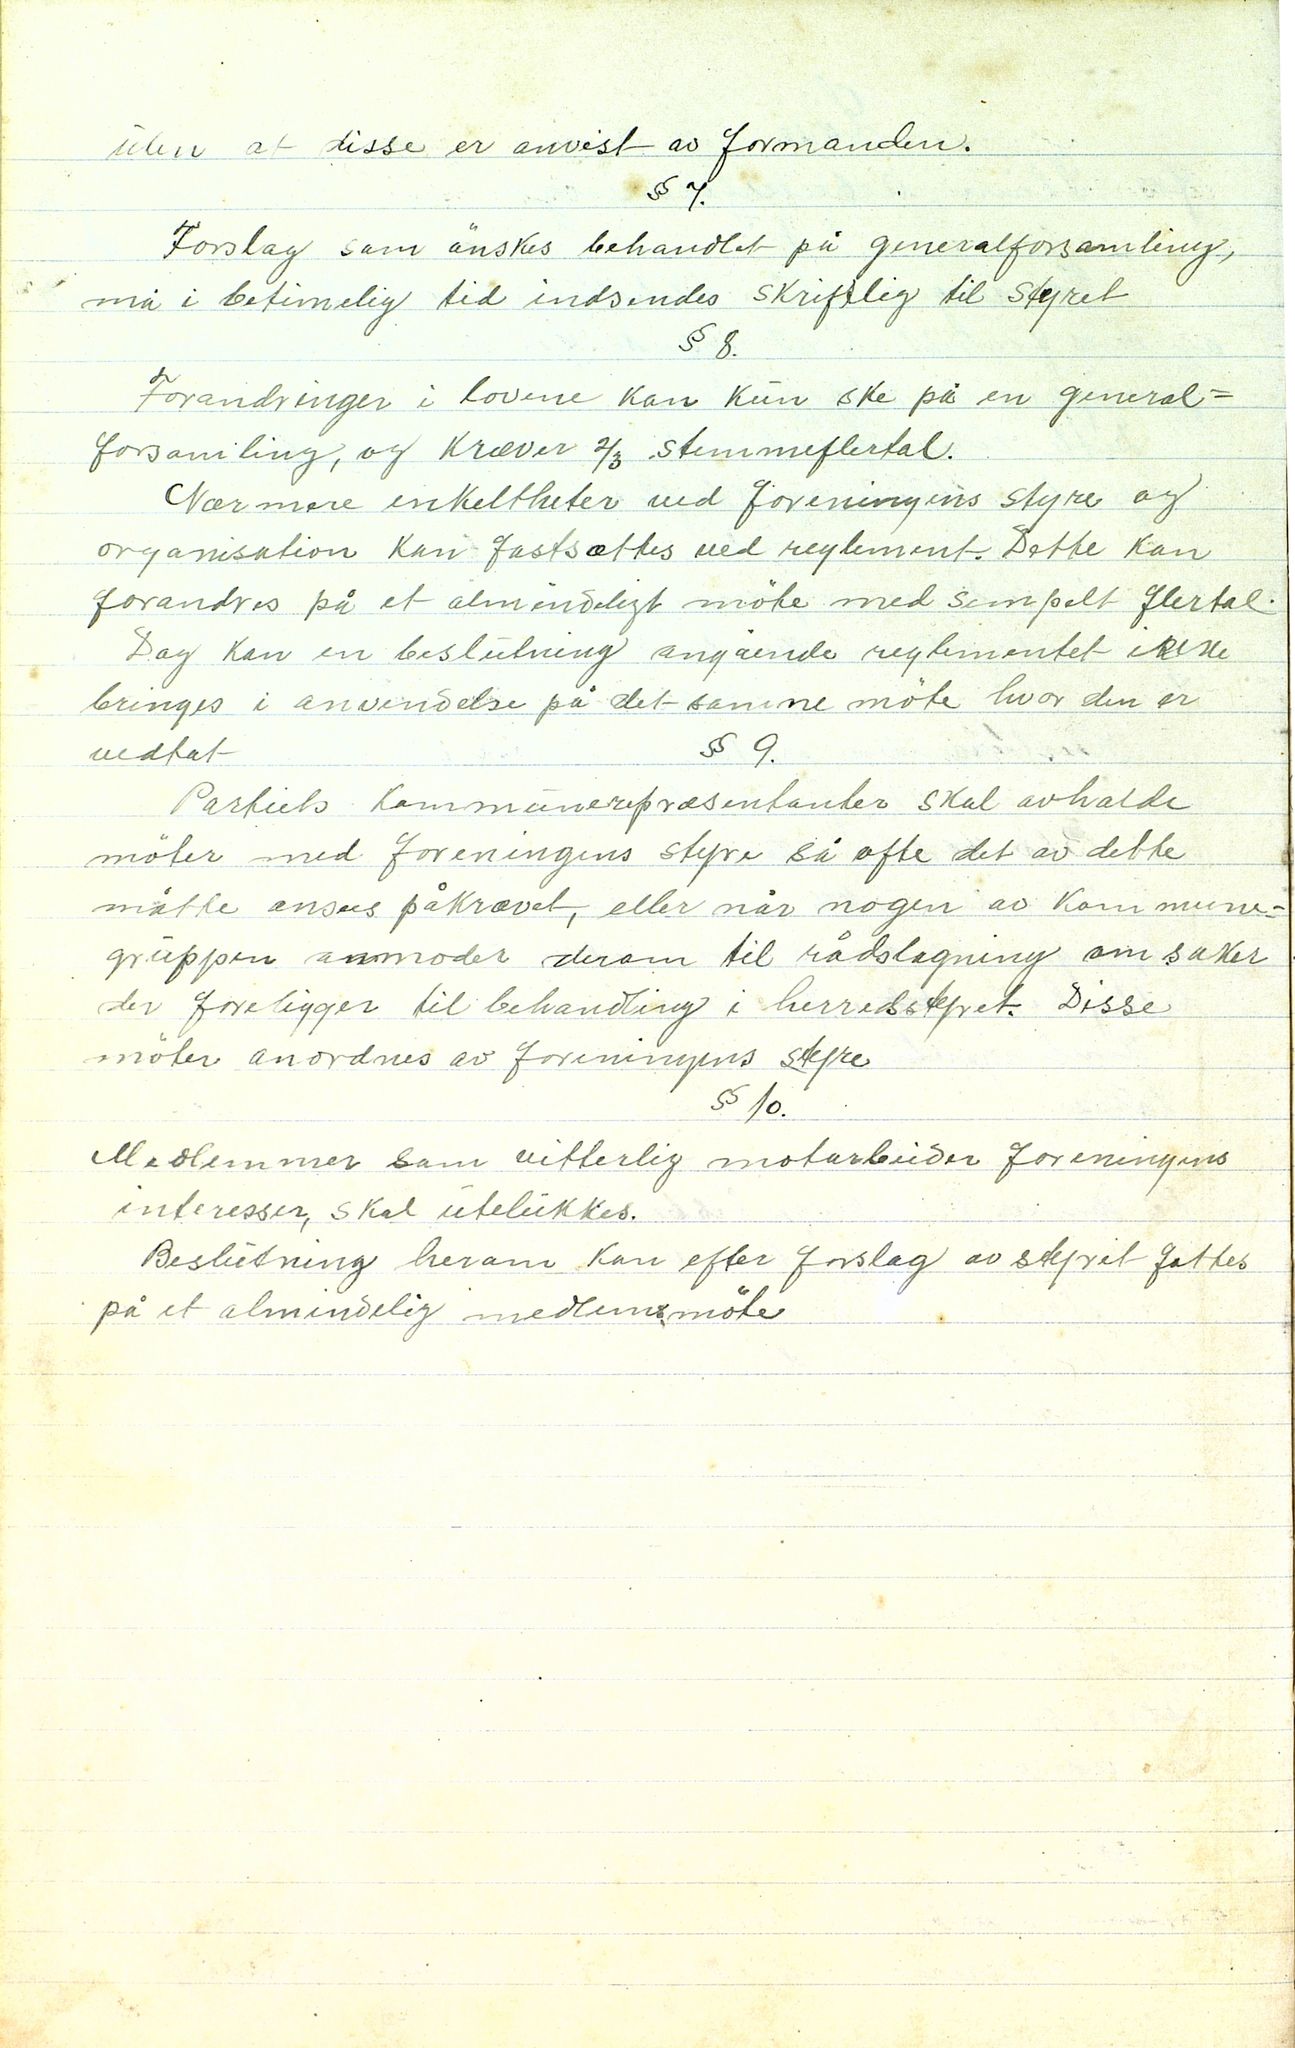 uten at disse er anvist av formanden.
§ 7.
Forslag som önskes behandlet på generalforsamling,
må i betimelig tid indsendes skriftlig til styret
§ 8.
Forandringer i lovene kan kun ske på en general=
forsamling, og kræver 2/3 stemmeflertal.
Nærmere enkeltheter ved foreningens styre og
organisation kan fastsættes ved reglement. Dette kan
forandres på et almindeligt möte med simpelt flertal.
Dog kan en beslutning angående reglementet ikke
bringes i anvendelse på det samme möte hvor den er
vedtat § 9.
Partiets kommunerepræsentanter skal avholde
möter med foreningens styre så ofte det av dette
måtte ansees påkrævet, eller når nogen av kommune=
gruppen anmoder derom til rådslagning om saker
der foreligger til behandling i herredsstyret. Disse
möter anordnes av foreningens styre
§ 10.
Medlemmer som vitterlig motarbeider foreningens
interesser, skal utelukkes.
Beslutning herom kan efter forslag av styret fattes
på et almindelig medlemsmöte